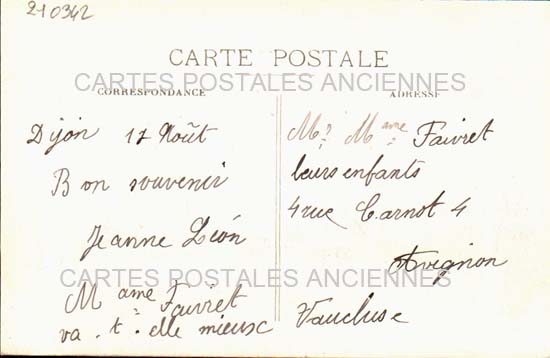 210342
CARTE POSTALE
CARTES POSTALES ANCIENNES
CORRESPONDANCE
Dijon 17 Août
Bon souvenir
Jeanne Léon
Mame Faivret
va-t-elle mieux
ADRESSE
Mr Mame Faivret
leurs enfants
4 rue Carnot 4
Avignon
CARTES POSTALES ANCIENNES
Vaucluse